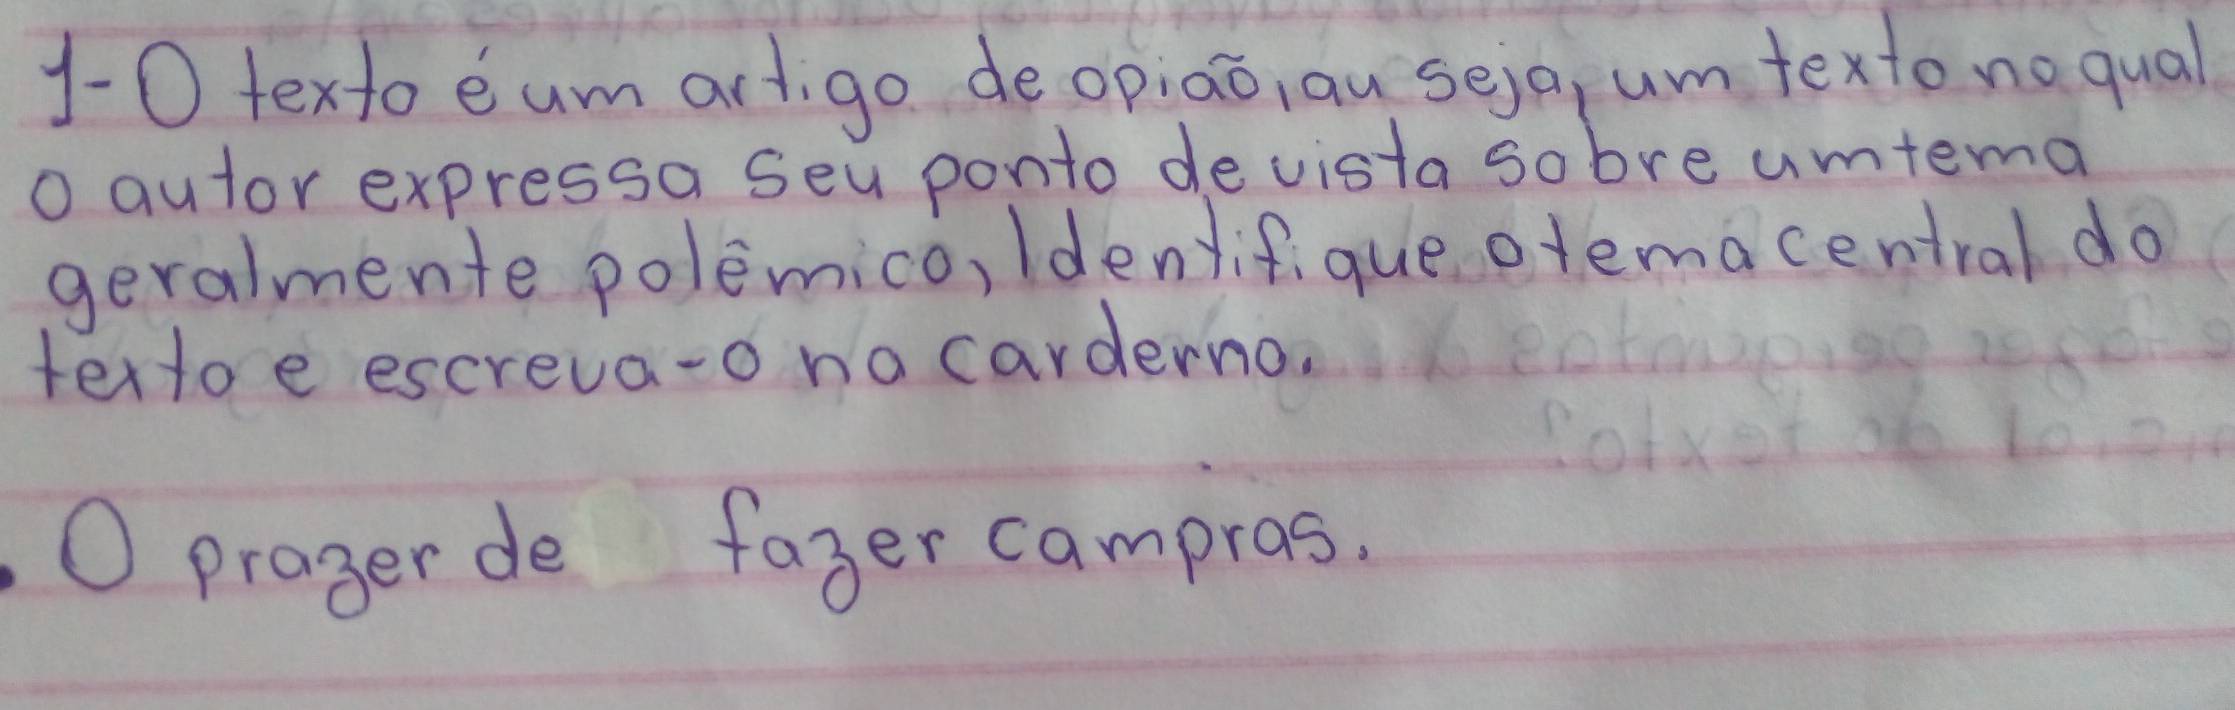 1-O texto é um artigo de opiaõ, au seja, um texto no qual
o autor expressa seu ponto de vista sobre um tema
geralmente polêmico, Identifique o tema central do
texto e escreva-o no carderno.
. O prazer de fazer campras.